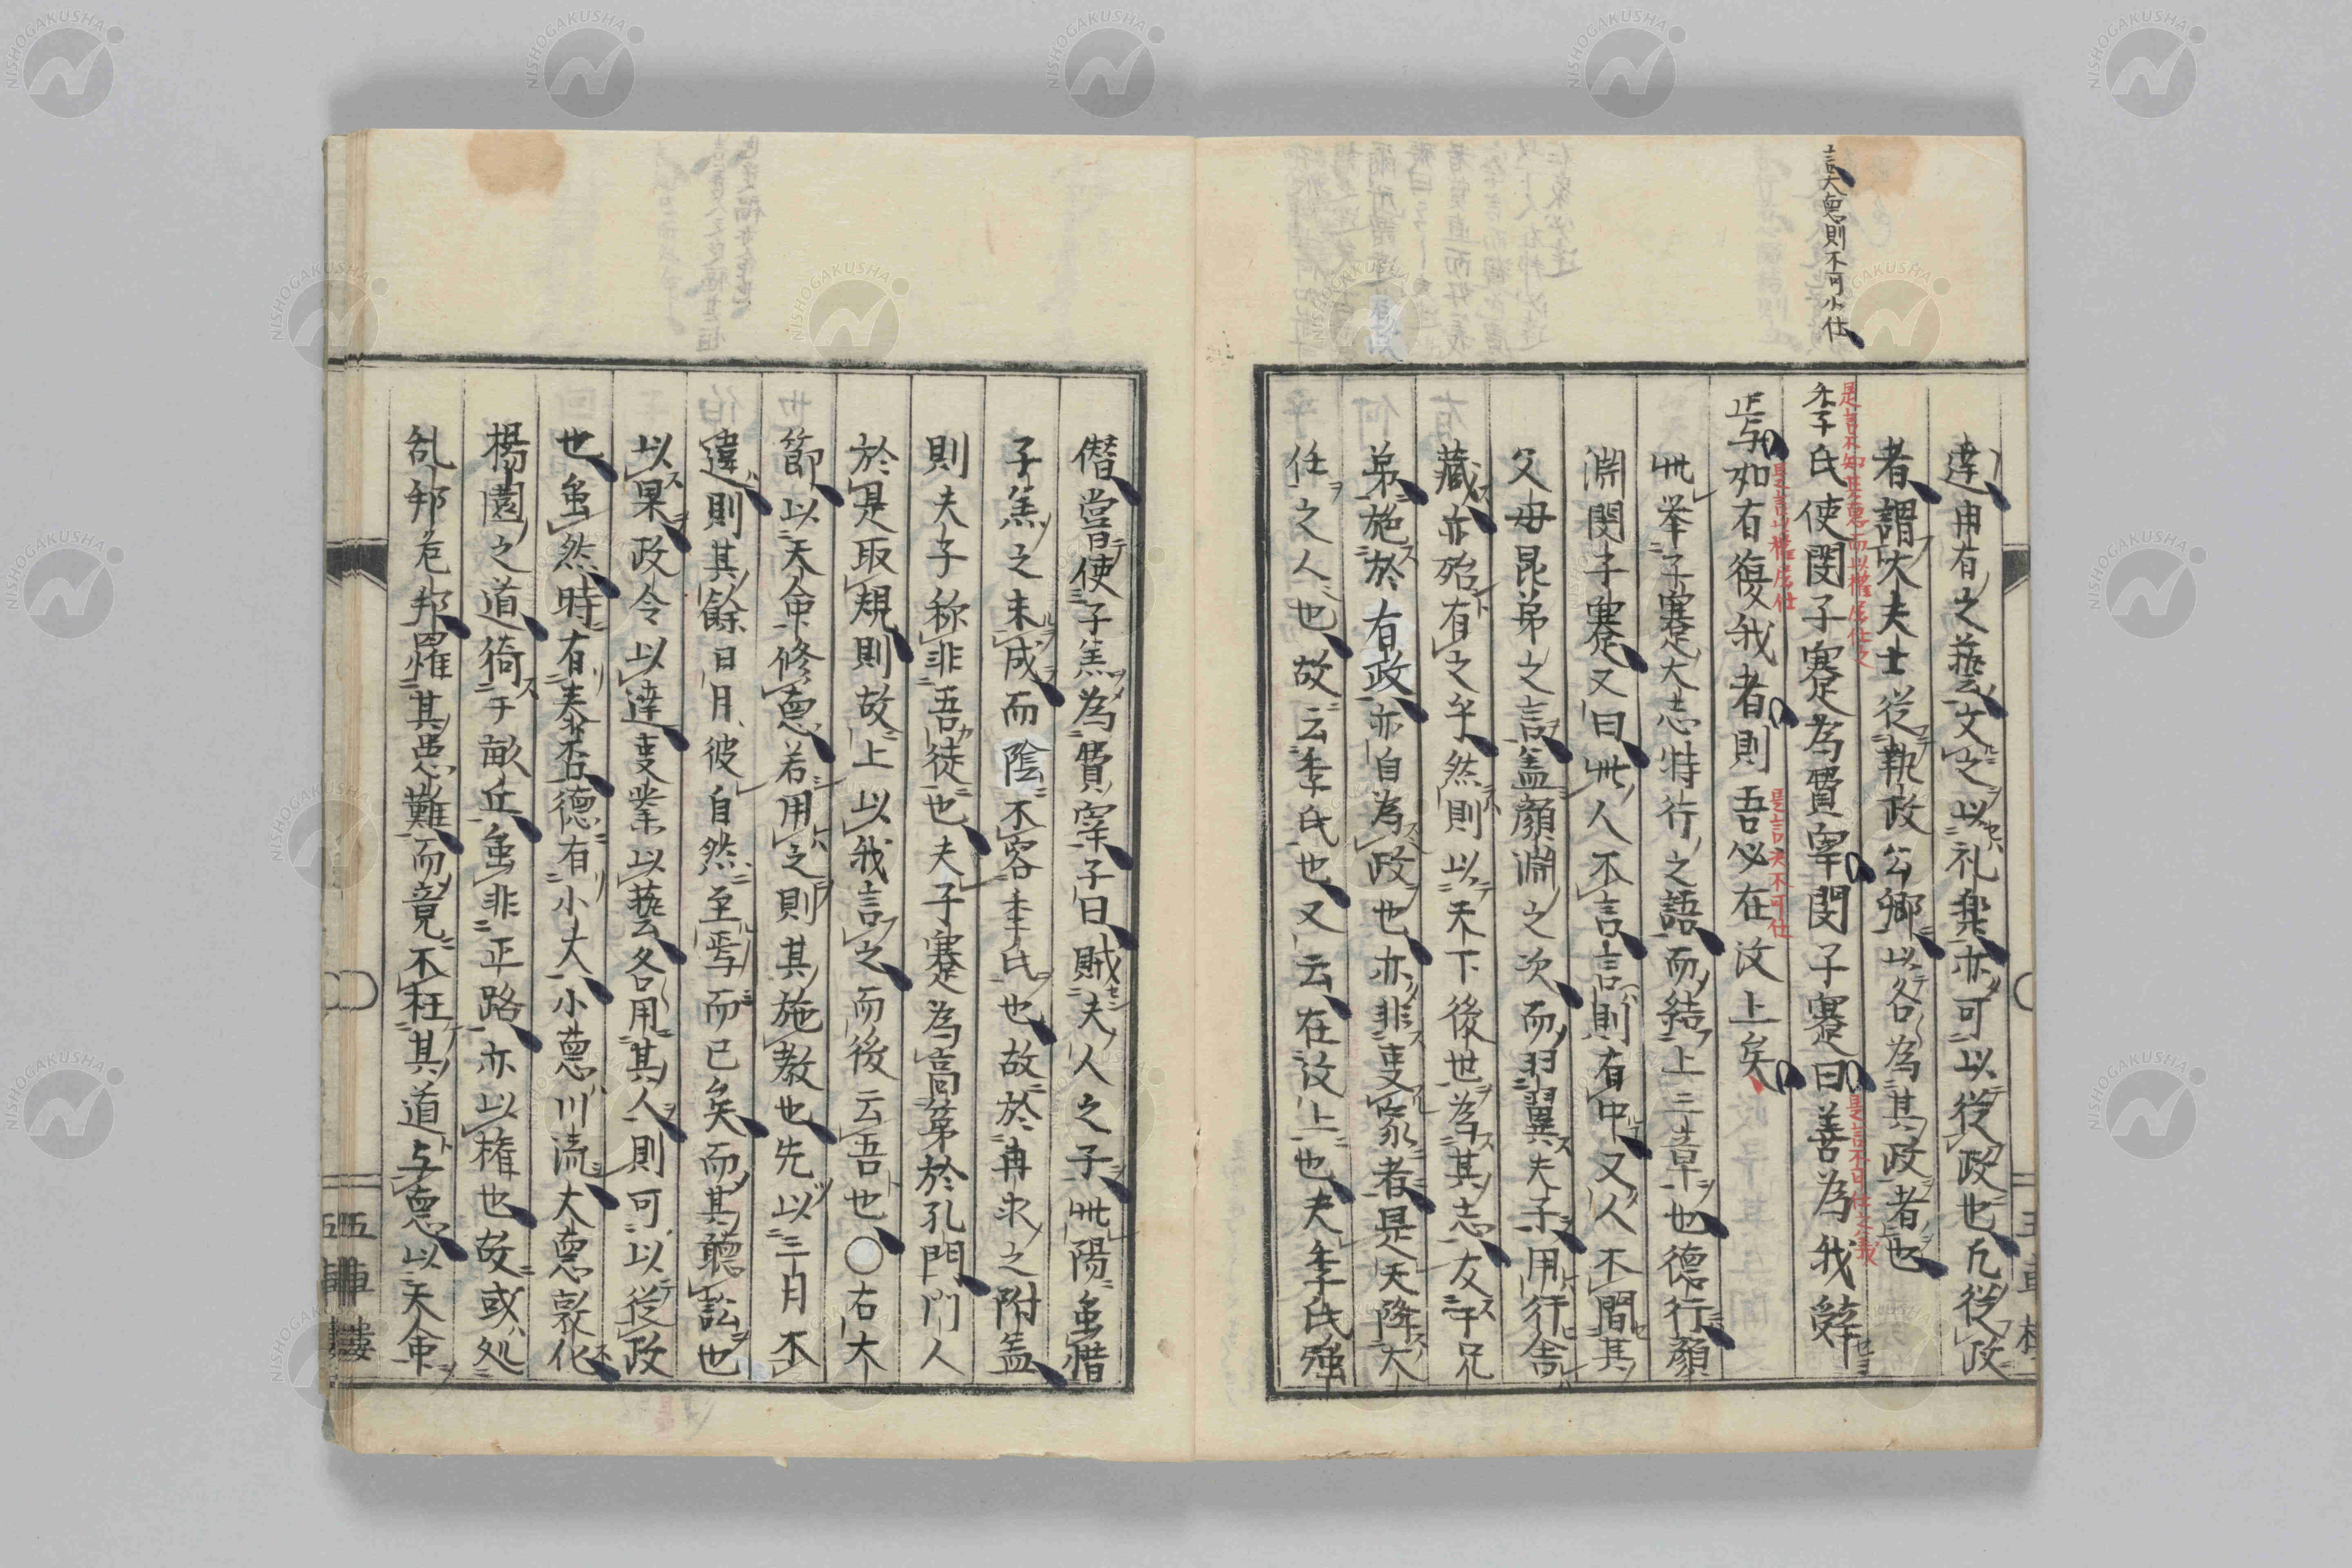 言大悳則不可少仕
達冉有之藝文之以礼楽亦可以従政也凡従政
者謂大夫士従執政公卿以各為其政者也
季氏使閔子騫為費宰閔子騫曰善為我辞
是言不知其悳而以権居仕之
是言不可仕之義
焉如有復我者則吾必在汶上矣
是言以権居仕
是言夫不可仕
此挙子騫大志特行之語而結上三章也徳行顔
淵閔子騫又曰此人不言言則有中又人不間其
父母昆弟之言盖顔淵之次而羽翼夫子用行舎
蔵亦殆有之乎然則以天下後世為其志友于兄
弟施於有政亦自為政也亦非変家者是天降大
任之人也故云季氏也又云在汶上也夫季氏強
僭嘗使子羔為費宰子曰賊夫人之子此陽虽借
子羔之未成而陰不容季氏也故於冉求之附益
則夫子称非吾徒也夫子騫為高弟於孔門門人
於是取規則故上以我言之而後云吾也〇右大
節以天命修悳若用之則其施教也先以三月不
違則其餘日月彼自然至焉而已矣而其聴訟也
以果政令以達変業以藝各用其人則可以従政
也虽然時有泰否徳有小大小悳川流大悳敦化
楊園之道猗于畝丘虽非正路亦以権也故或処
乱邦危邦罹其患難而竟不枉其道与悳以天命
五車楼